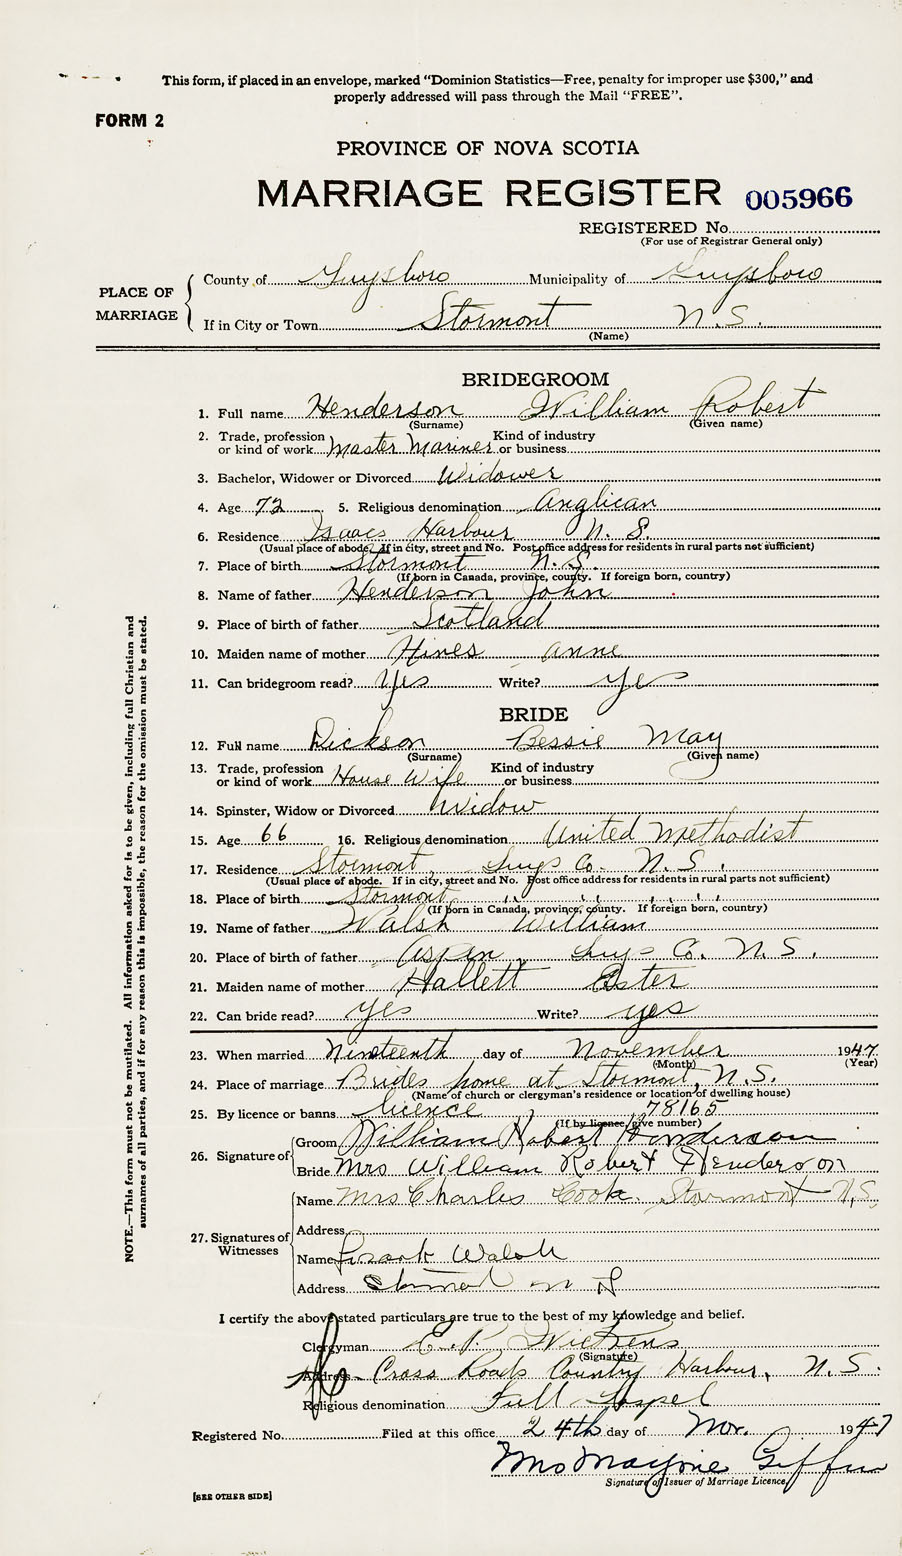 This form, if placed in an envelope, marked “Dominion Statistics—Free, penalty for improper use $300,” and
properly addressed will pass through the Mail “FREE”.
FORM 2
PROVINCE OF NOVA SCOTIA
MARRIAGE REGISTER 005966
REGISTERED No.
(For use of Registrar General only)
PLACE OF MARRIAGE
County of Guysboro Municipality of Guysboro
If in City or Town Stormont N.S.
(Name)
BRIDEGROOM
1. Full name Henderson William Robert
(Surname) (Given name)
2. Trade, profession or kind of work Master Mariner Kind of industry or business
3. Bachelor, Widower or Divorced Widower
4. Age 72 5. Religious denomination Anglican
6. Residence Isaacs Harbour N. S.
(Usual place of abode. If in city, street and No. Post office address for residents in rural parts not sufficient)
7. Place of birth Stormont N.S.
(If born in Canada, province, county. If foreign born, country)
8. Name of father Henderson John
9. Place of birth of father Scotland
10. Maiden name of mother Hines Anne
11. Can bridegroom read? Yes Write? Yes
BRIDE
12. Full name Dickson Bessie May
(Surname) (Given name)
13. Trade, profession or kind of work House Wife Kind of industry or business
14. Spinster, Widow or Divorced Widow
15. Age 66 16. Religious denomination United Methodist
17. Residence Stormont, Guys Co. N.S.
(Usual place of abode. If in city, street and No. Post office address for residents in rural parts not sufficient)
18. Place of birth Stormont " " " "
(If born in Canada, province, county. If foreign born, country)
19. Name of father Walsh William
20. Place of birth of father Aspen, Guys Co. N.S.
21. Maiden name of mother Hallett Ester
22. Can bride read? Yes Write? yes
23. When married Nineteenth day of November 1947
(Month) (Year)
24. Place of marriage Brides home at Stormont, N.S.
(Name of church or clergyman's residence or location of dwelling house)
25. By licence or banns licence 78165
(If by licence, give number)
26. Signature of
Groom William Robert Henderson
Bride Mrs William Robert Henderson
27. Signatures of Witnesses
Name Mrs Charles Cook. Stormont N.S.
Address
Name Frank Walsh
Address Stormont N S
I certify the above stated particulars are true to the best of my knowledge and belief.
Clergyman E. P. Wickens
(Signature)
Address Cross Roads Country Harbour, N.S.
Religious denomination Full Gospel
Registered No. Filed at this office 24th day of Nov. 1947
Mrs Marjorie Giffin
Signature of Issuer of Marriage Licence.
[SEE OTHER SIDE]
NOTE.—This form must not be mutilated. All information asked for is to be given, including full Christian and
surnames of all parties, and if for any reason this is impossible, the reason for the omission must be stated.